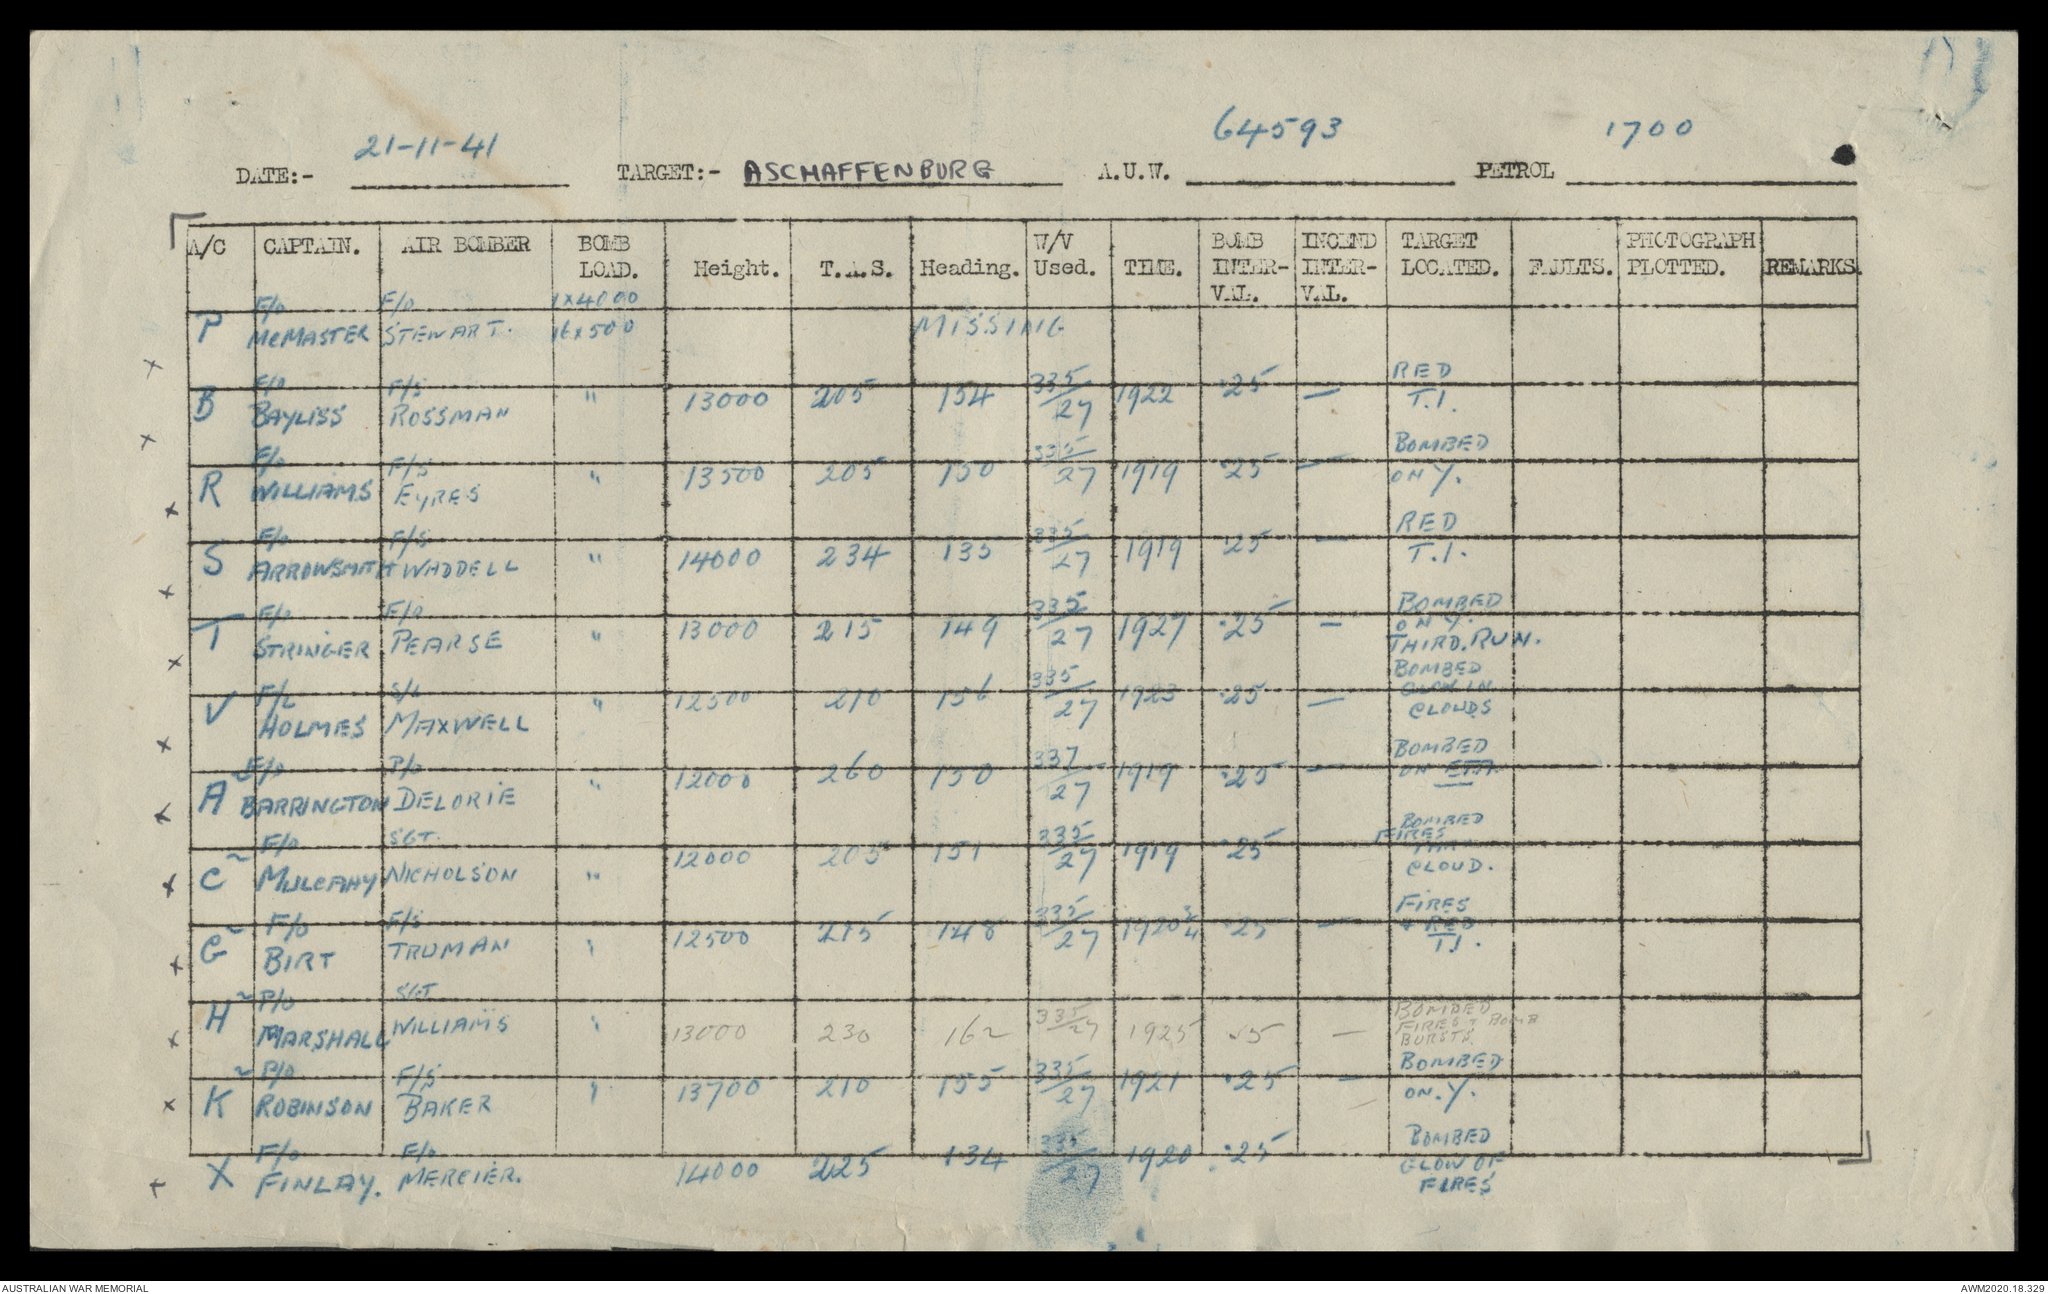 DATE:- 21-11-41 TARGET:- ASCHAFFENBURG A.U.W. 64593 PETROL 1700
A/C CAPTAIN. AIR BOMBER BOMB LOAD. Height. T.A.S. Heading. W/V Used. TIME. BOMB INTER-VAL. INCEND INTER-VAL. TARGET LOCATED. FAULTS. PHOTOGRAPH PLOTTED. REMARKS.
P F/O McMASTER F/O STEWART. 1x4000 16x500 MISSING
x B F/O BAYLISS F/S ROSSMAN " 13000 205 154 335/27 1922 .25 — RED T.I.
x R F/O WILLIAMS F/S EYRES " 13500 205 150 335/27 1919 .25 — BOMBED ON Y.
x S F/O ARROWSMITH F/S WADDELL " 14000 234 135 335/27 1919 .25 — RED T.I.
x T F/O STRINGER F/O PEARSE " 13000 215 149 335/27 1927 .25 — BOMBED ON Y. THIRD. RUN.
x V F/L HOLMES S/L MAXWELL " 12500 210 156 335/27 1923 .25 — BOMBED GLOW IN CLOUDS
x A~ F/O BARRINGTON P/O DELORIE " 12000 260 150 337/27 1919 .25 — BOMBED ON ETA.
x C~ F/O MULCAHY SGT. NICHOLSON " 12000 205 151 335/27 1919 .25 BOMBED FIRES THRO CLOUD.
x G~ F/O BIRT F/S TRUMAN " 12500 215 148 335/27 1920 3/4 .25 — FIRES + RED T.I.
x H~ P/O MARSHALL SGT WILLIAMS " 13000 230 162 335/27 1925 .25 — BOMBED FIRES + BOMB BURSTS.
x K~ P/O ROBINSON F/S BAKER " 13700 210 155 335/27 1921 .25 — BOMBED ON. Y.
x X F/O FINLAY. F/O MERCIER. 14000 225 134 335/27 1920 .25 BOMBED GLOW OF FIRES
x
AUSTRALIAN WAR MEMORIAL AWM2020.18.329